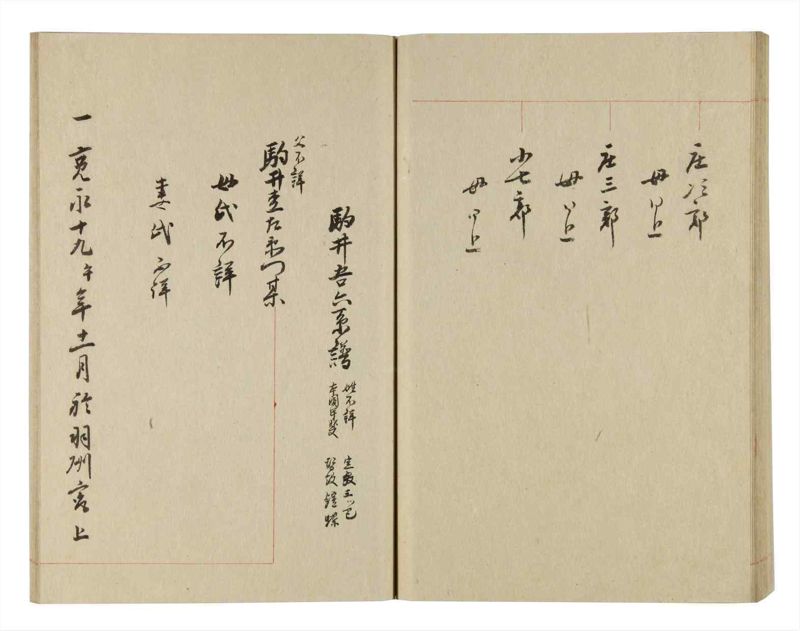 庄次郎
母同上
庄三郎
母同上
小七郎
母同上
駒井吾六系譜
姓不詳
本国甲斐
定紋三ツ巴
替紋鎧蝶
父不詳
駒井圭左衛門某
母氏不詳
妻氏不詳
一寛永十九午年十一月於羽州宮上